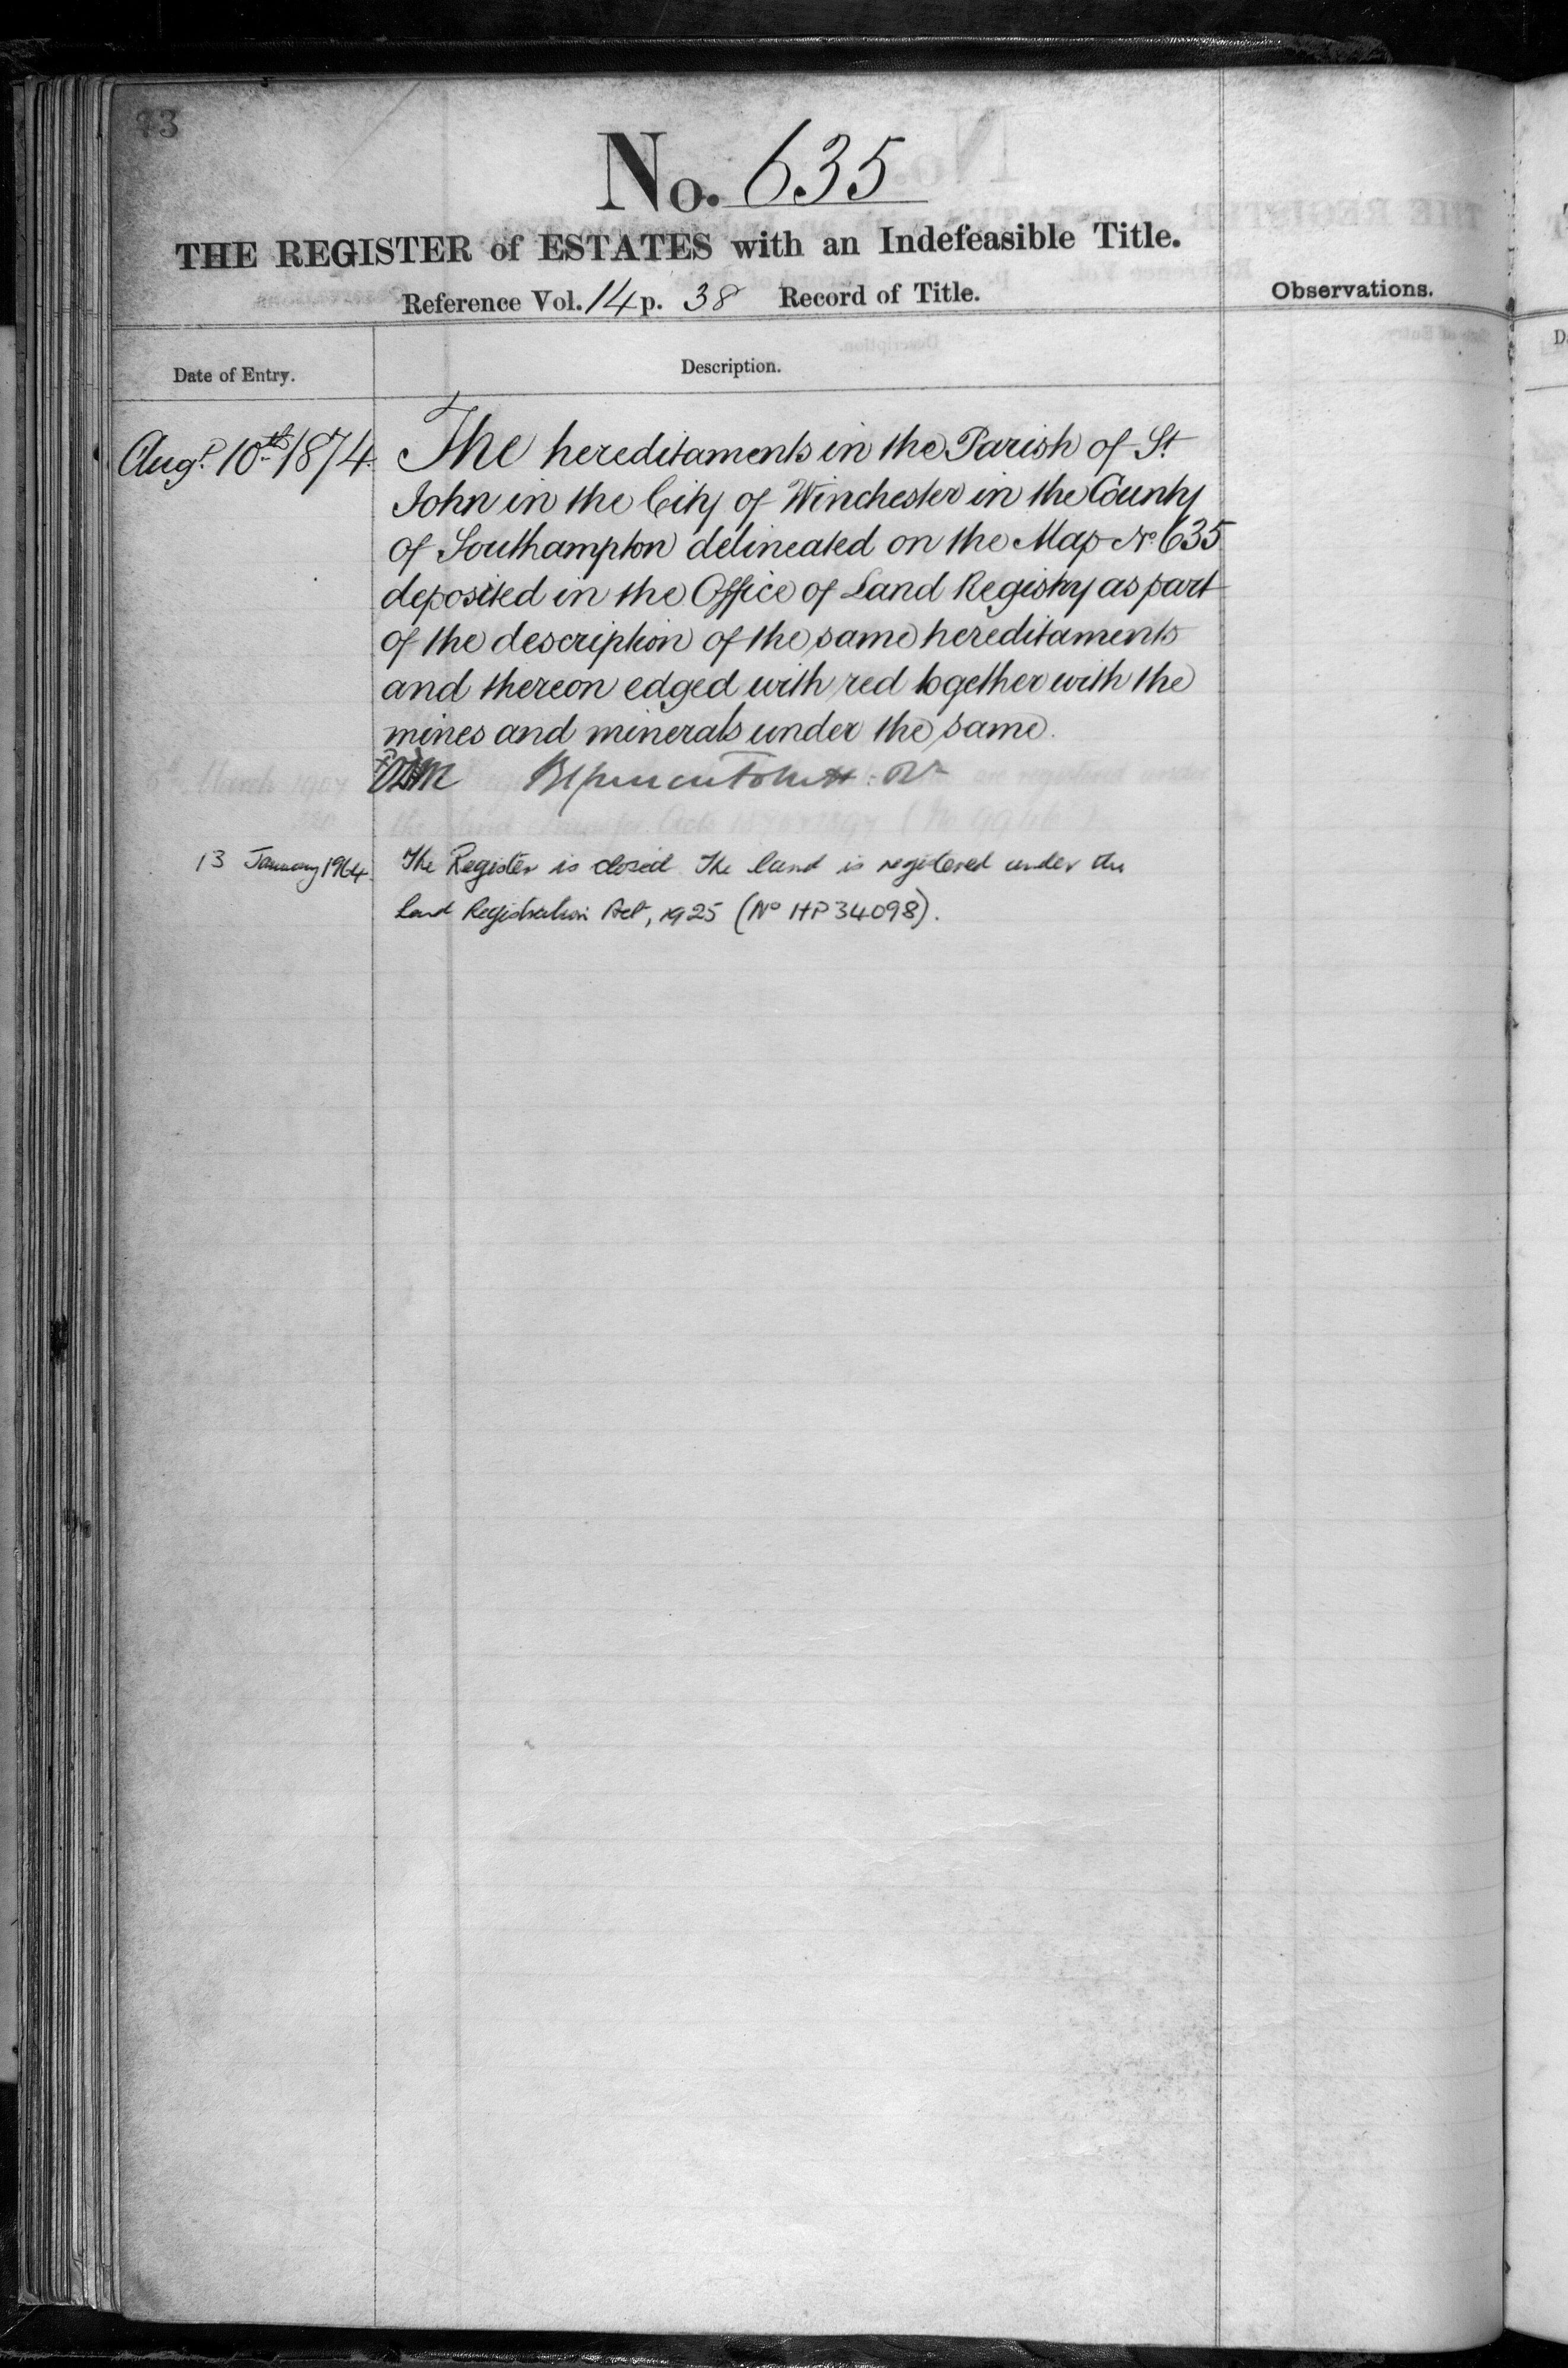 73
No. 635
THE REGISTER of ESTATES with an Indefeasible Title.
Reference Vol. 14 p. 38 Record of Title.
Observations.
Date of Entry.
Description.
Augt. 10th 1874.
The hereditaments in the Parish of St
John in the City of Winchester in the County
of Southampton delineated on the Map No 635
deposited in the Office of Land Registry as part
of the description of the same hereditaments
and thereon edged with red together with the
mines and minerals under the same.
13 January 1964.
The Register is closed The land is registered under the
Land Registration Act, 1925 (No HP 34098).